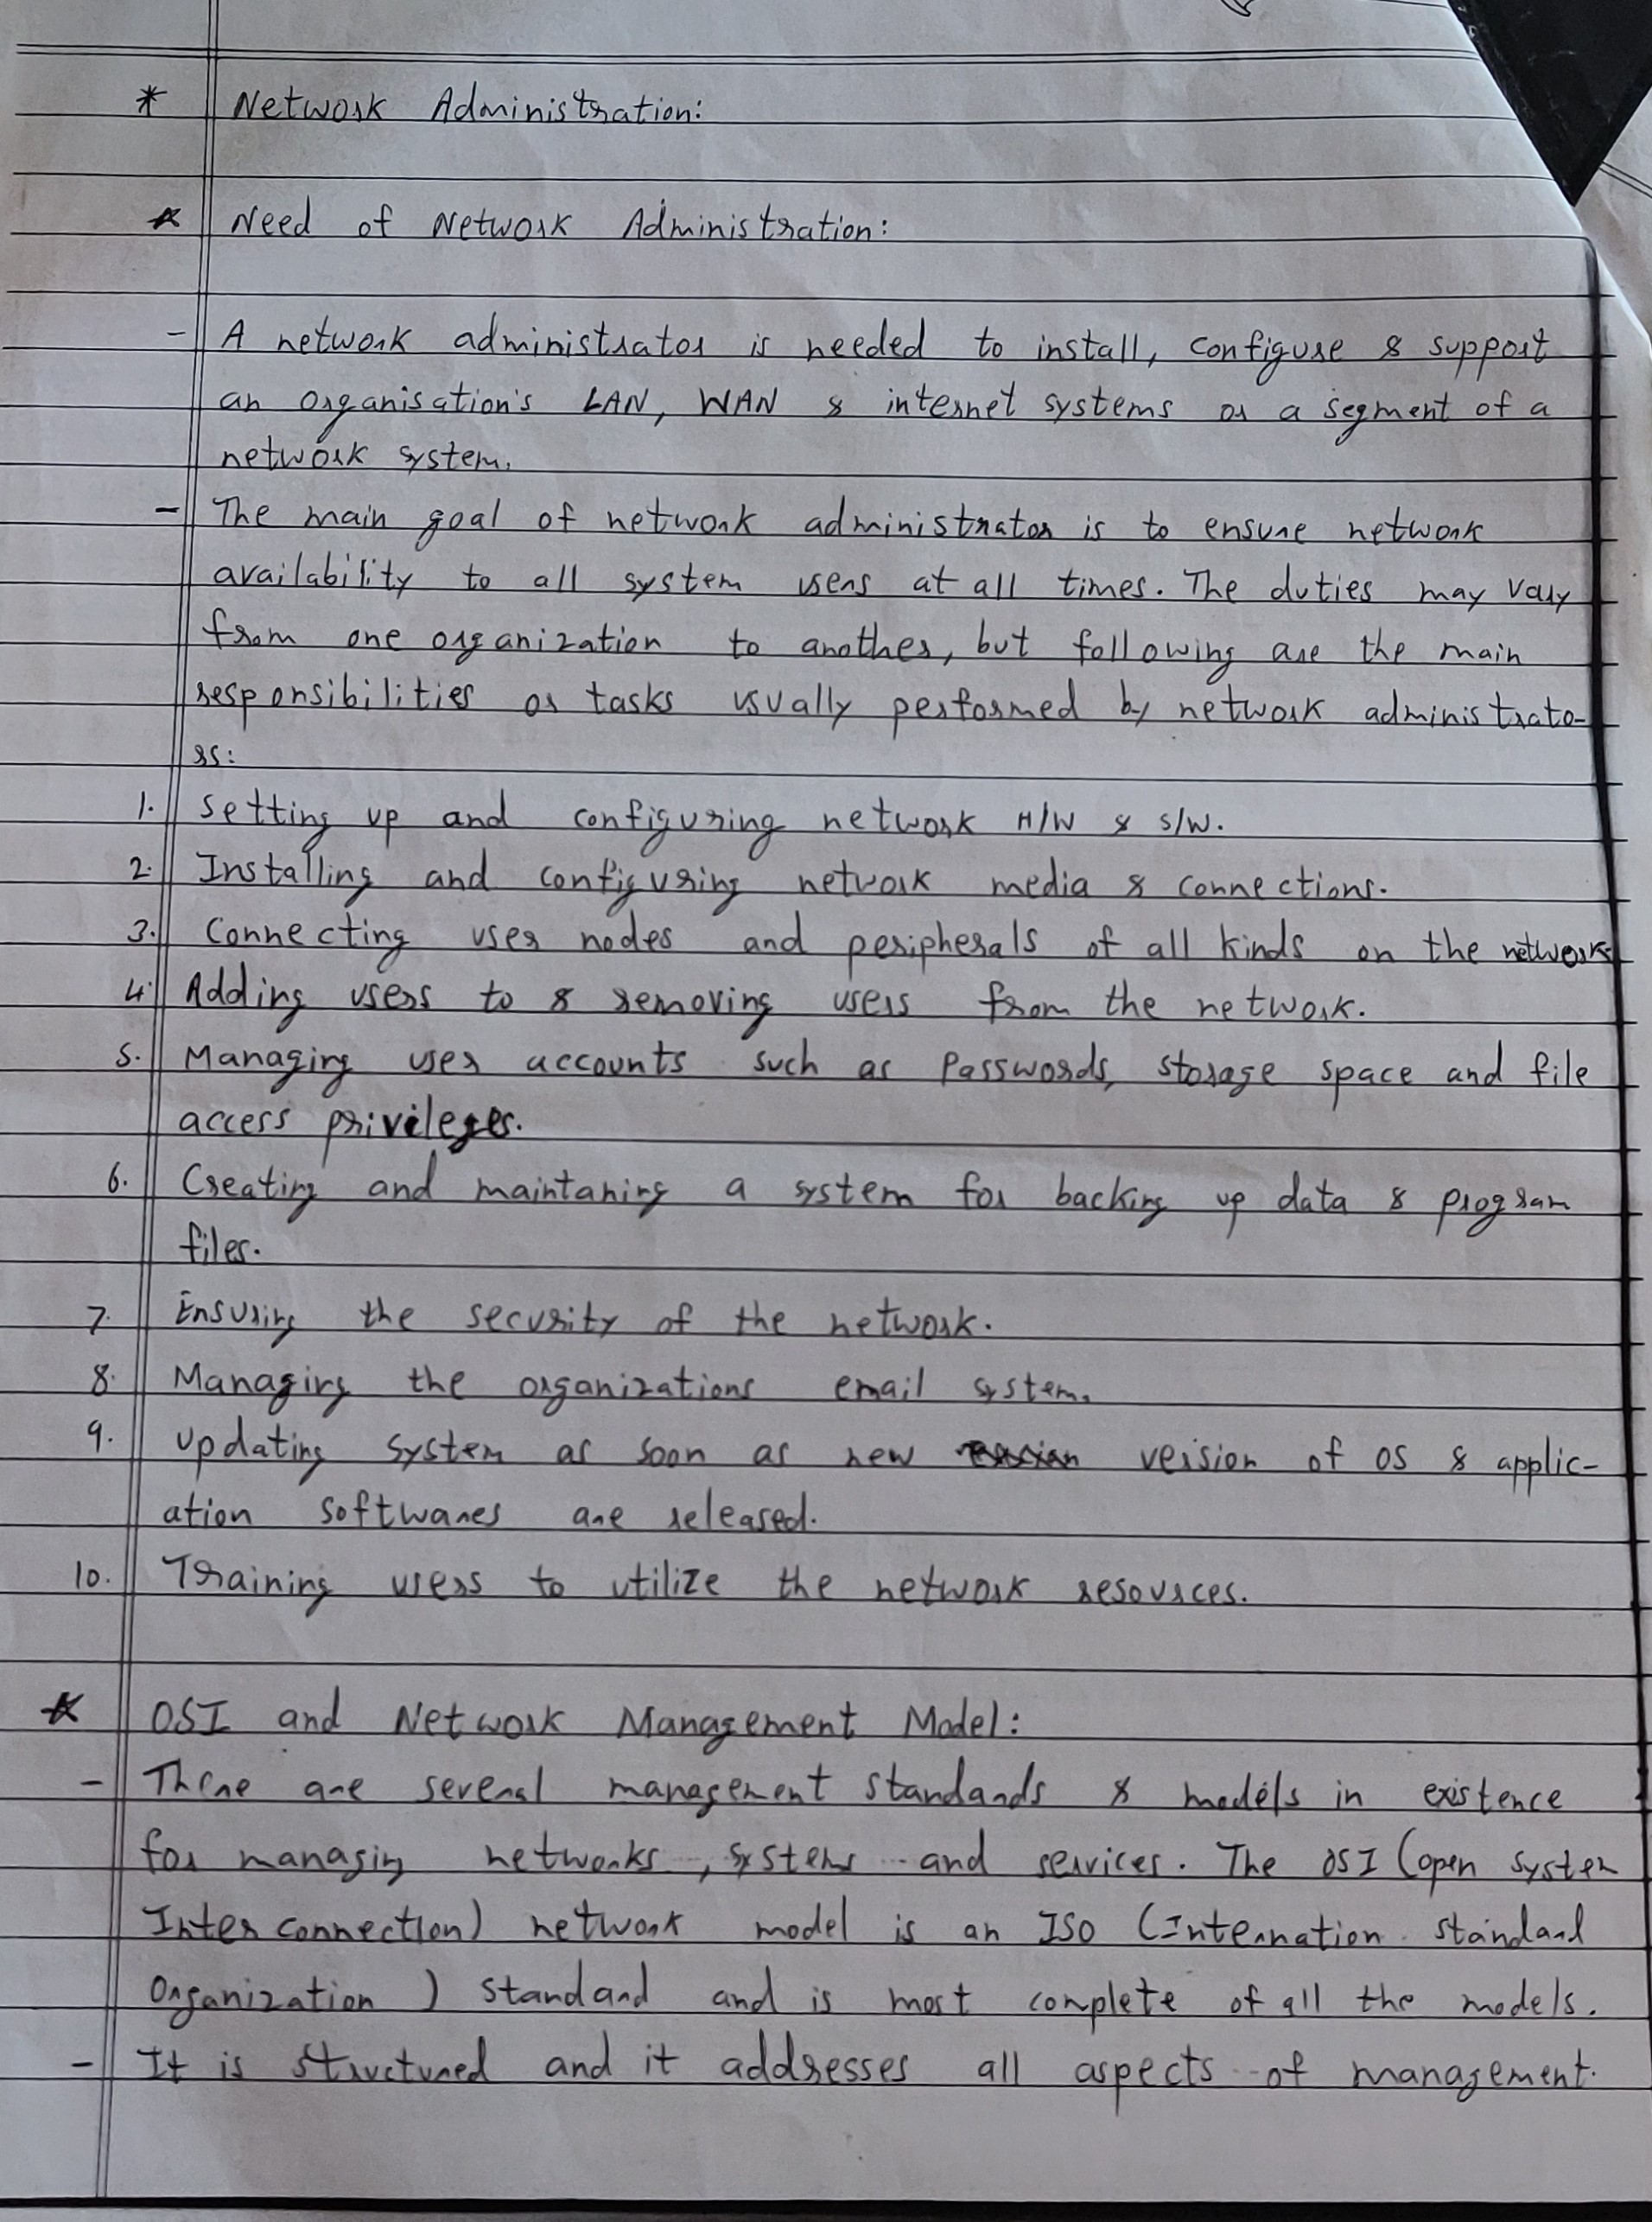 * Network Administration:
* Need of Network Administration:
- A network administrator is needed to install, configure & support
an organisation's LAN, WAN & internet systems or a segment of a
network system.
- The main goal of network administrator is to ensure network
availability to all system users at all times. The duties may vary
from one organization to another, but following are the main
responsibilities or tasks usually performed by network administrato-
rs:
1. Setting up and configuring network H/W & S/W.
2. Installing and configuring network media & connections.
3. Connecting user nodes and peripherals of all kinds on the network
4. Adding users to & removing users from the network.
5. Managing user accounts such as Passwords, storage space and file
access privileges.
6. Creating and maintaning a system for backing up data & program
files.
7. Ensuring the security of the network.
8. Managing the organizations email system.
9. Updating system as soon as new version of OS & applic-
ation softwares are released.
10. Training users to utilize the network resources.
* OSI and Network Management Model:
- There are several management standards & models in existence
for managing networks, systems and services. The OSI (open system
Inter connection) network model is an ISO (Internation standard
Organization) standard and is most complete of all the models.
- It is structured and it addresses all aspects of management.